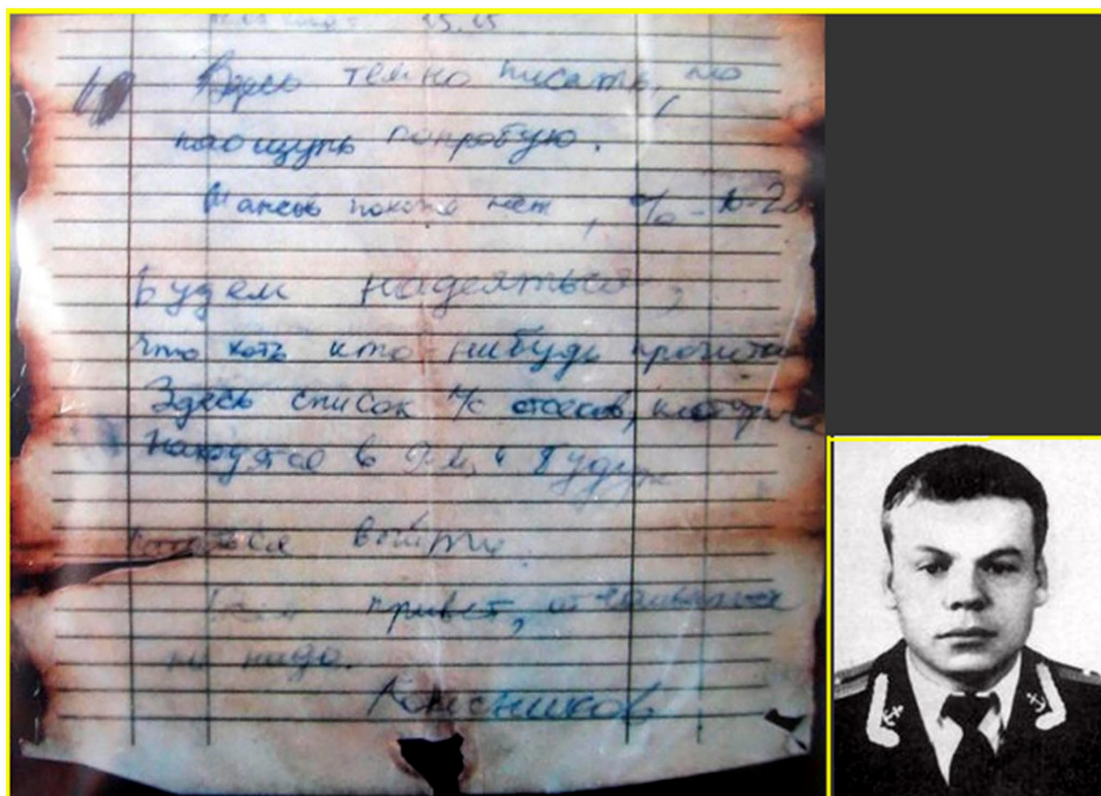 Здесь темно писать, но
наощупь попробую.
Шансов похоже нет, % - 10-20
Будем надеяться,
что хоть кто-нибудь
Здесь список л/с отсеков, которые
находятся в 9-м и будут
пытаться выйти.
Всем привет, отчаиваться
не надо.
Колесников